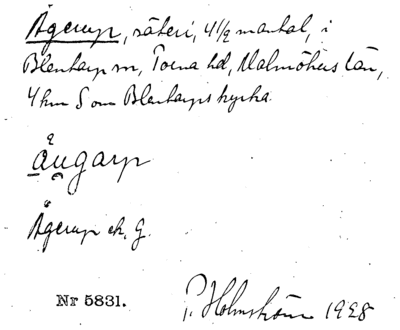 Ågerup, säteri, 4 1/2 mantal, i
Blentarp sn, Torna hd, Malmöhus län,
4 km S om Blentarps kyrka.
åugarp
Ågerup ek. G.
Nr 5831.
P. Holmström 1928